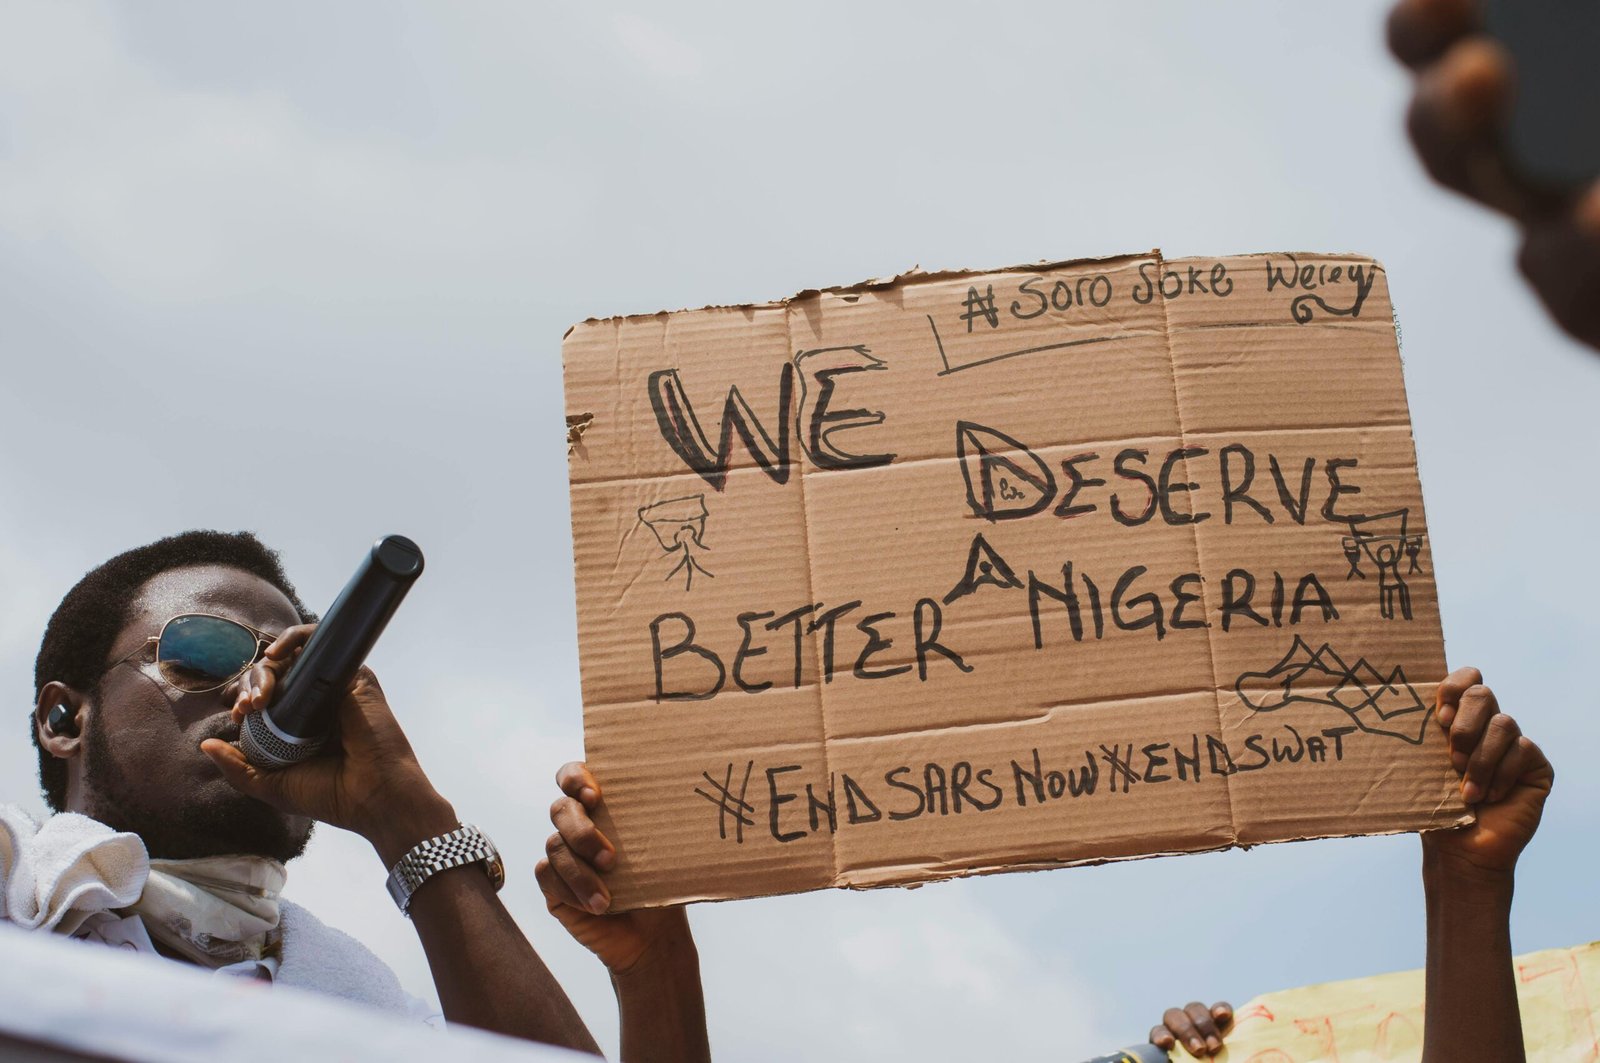 # Soro Soke Werey
WE
DESERVE
BETTER A NIGERIA
#ENDSARS NOW #ENDSWAT